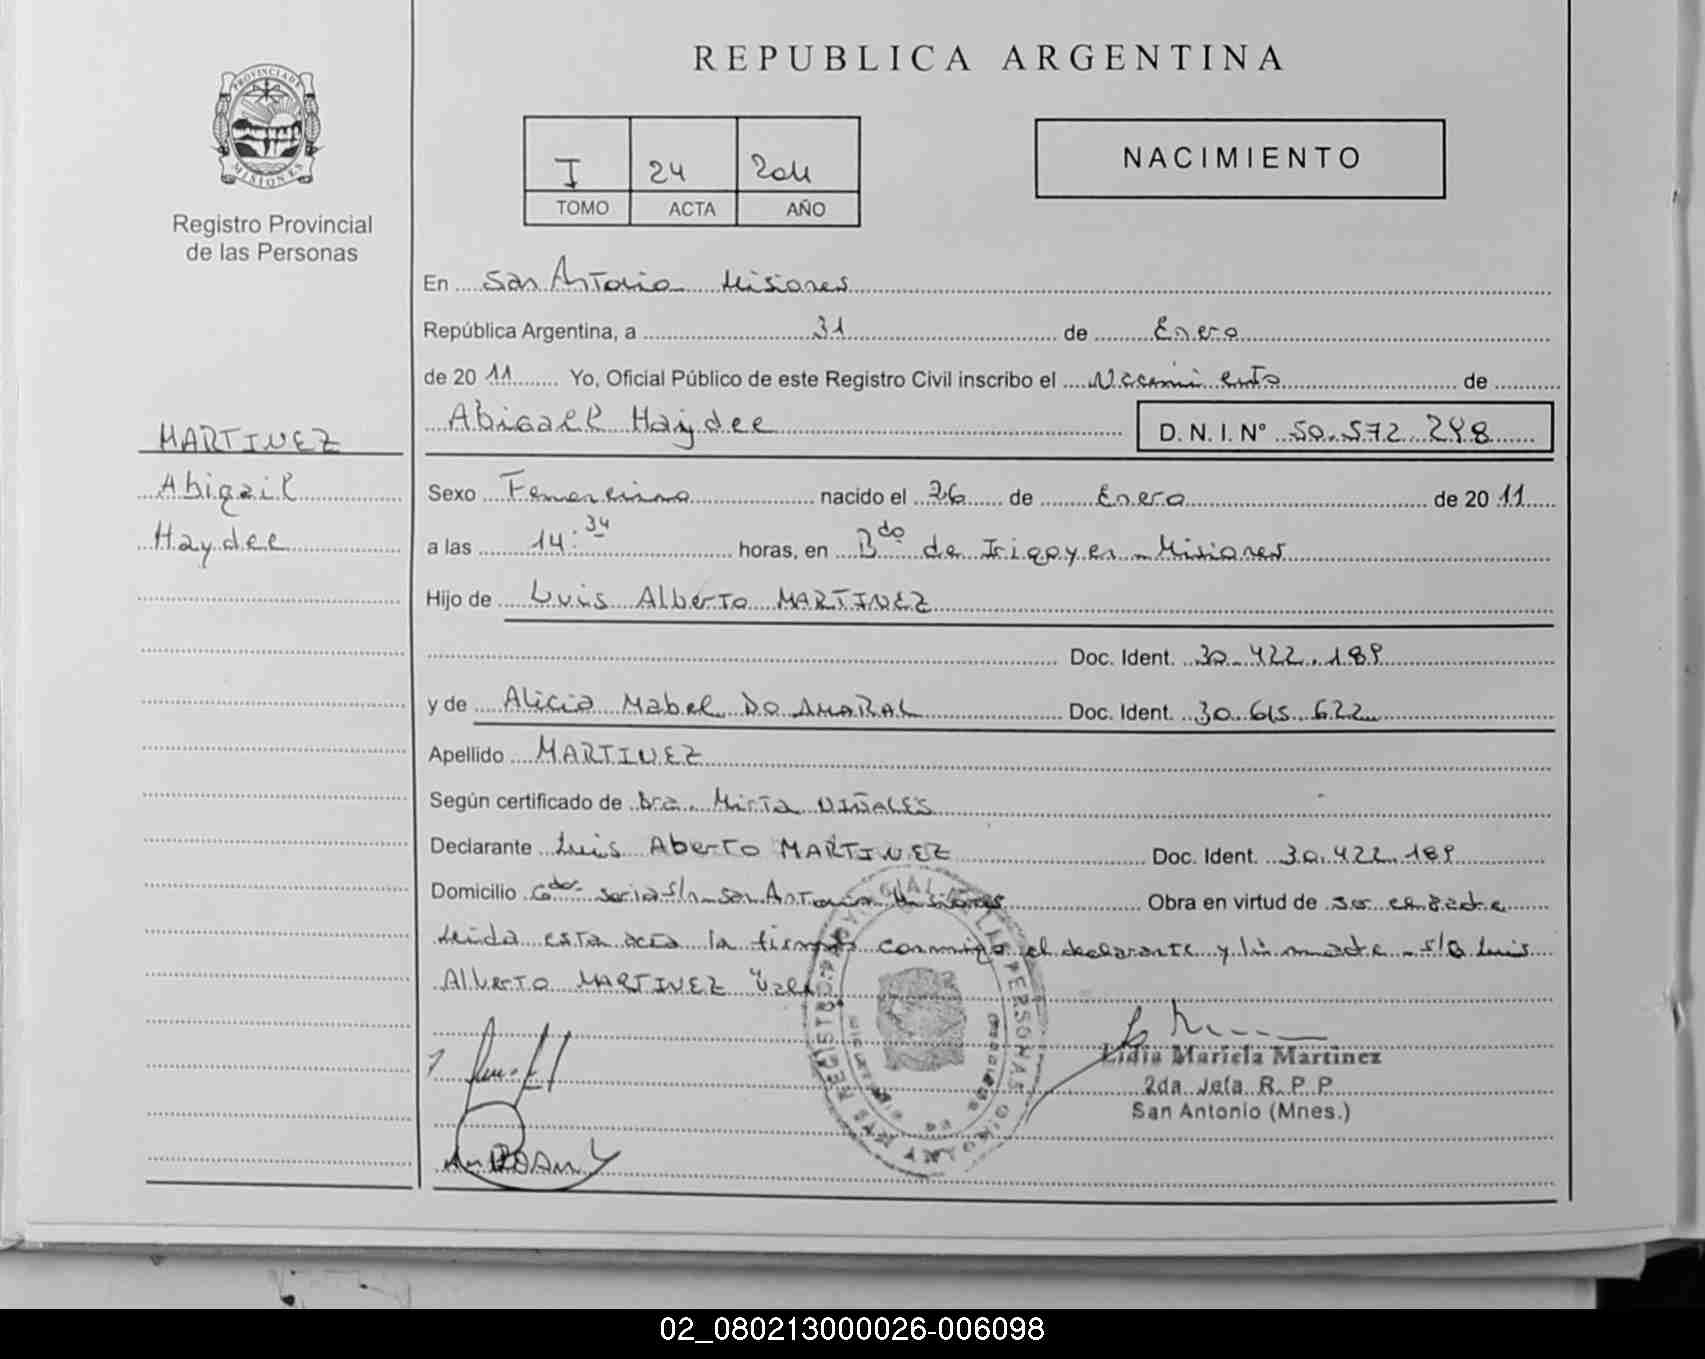 PROVINCIA DE
MISIONES
Registro Provincial
de las Personas
MARTINEZ
Abigail
Haydee
REPUBLICA ARGENTINA
I 24 2011
TOMO ACTA AÑO
NACIMIENTO
En San Antonio Misiones
República Argentina, a 31 de Enero
de 2011 Yo, Oficial Público de este Registro Civil inscribo el Nacimiento de
Abigail Haydee D. N. I. N° 50.572.248
Sexo Femenino nacido el 26 de Enero de 2011
a las 14:34 horas, en Bdo de Irigoyen - Misiones
Hijo de Luis Alberto MARTINEZ
Doc. Ident. 30.422.189
y de Alicia Mabel DO AMARAL Doc. Ident. 30.615.622
Apellido MARTINEZ
Según certificado de Dra. Mirta VIÑALES
Declarante Luis Aberto MARTINEZ Doc. Ident. 30.422.189
Domicilio s/n San Antonio Misiones Obra en virtud de ser
Leida esta acta la conmigo el declarante y la madre - s/b Luis
Alberto MARTINEZ Vale
Lidia Mariela Martinez
2da Jefa R. P. P.
San Antonio (Mnes.)
02_080213000026-006098